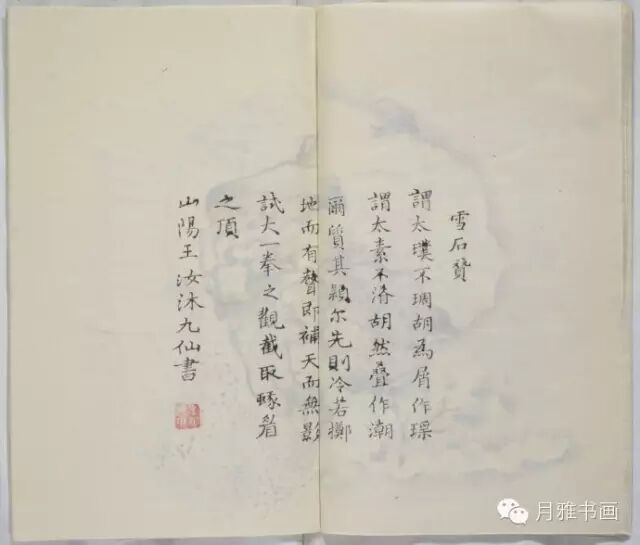 雪石贊
謂太璞不琱胡為屑作瑮
謂太素不洛胡然疊作潮
爾質其潁尔先則冷若擲
地而有聲即補天而無影
試大一拳之觀截取
之頂
山陽王汝泳九仙書
月雅书画